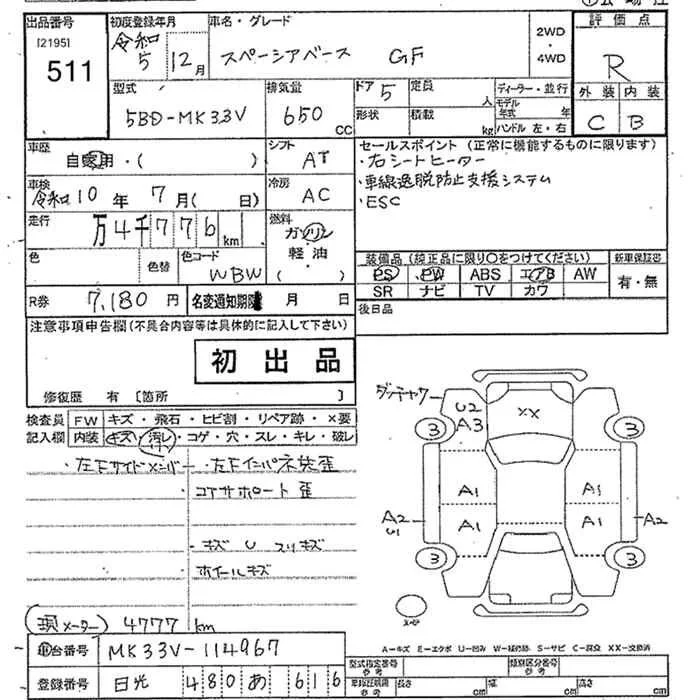 出品番号 初度登録年月 車名・グレード 評価点
[2195]
511
令和5 12月 スペーシアベース GF
2WD
・
4WD
R
外装 内装
C B
型式 排気量 ドア 5 定員 人 ディーラー・並行
5BD-MK33V 650 CC
形状 積載 kg モデル年式 年
ハンドル 左・右
車歴 シフト セールスポイント (正常に機能するものに限ります)
自家用・( ) AT
・右シートヒーター
・車線逸脱防止支援システム
・ESC
車検 冷房
令和10年 7月( 日) AC
走行 燃料
万4千776km ガソリン
軽油
( )
色 色替 色コード
WBW
装備品 (純正品に限り○をつけてください) 新車保証書
PS PW ABS エアB AW 有・無
SR ナビ TV カワ
R券 7,180円 名変通知期限 月 日
後日品
注意事項申告欄(不具合内容等は具体的に記入して下さい)
初出品
修復歴 有 [箇所 ]
検査員 FW キズ・飛石・ヒビ割・リペア跡・×要
記入欄 内装 キズ・汚レ・コゲ・穴・スレ・キレ・破レ
・左Fサイドメンバー ・左Fインパネ先歪
コアサポート 歪
・キズ U スリキズ
ホイールキズ
現メーター 4777 km
U2
A3
XX
3 3
A1 A1
A2
U1
A1 A1
A2
3 3
A=キズ E=エクボ U=凹み W=補修跡 S=サビ C=腐食 XX=交換済
車台番号 MK33V-114967
登録番号 日光 480 あ 616
型式指定番号 参考 類別区分番号 参考
長さ cm 幅 cm 高さ cm